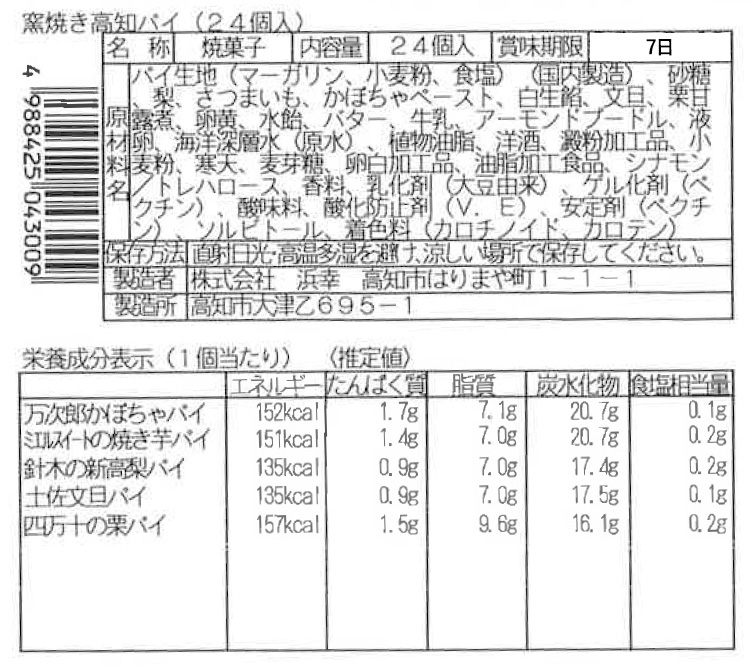 窯焼き高知パイ（２４個入）
名 称 焼菓子 内容量 ２４個入 賞味期限 7日
原材料名
パイ生地（マーガリン、小麦粉、食塩）（国内製造）、砂糖
、梨、さつまいも、かぼちゃペースト、白生餡、文旦、栗甘
露煮、卵黄、水飴、バター、牛乳、アーモンドプードル、液
卵、海洋深層水（原水）、植物油脂、洋酒、澱粉加工品、小
麦粉、寒天、麦芽糖、卵白加工品、油脂加工食品、シナモン
／トレハロース、香料、乳化剤（大豆由来）、ゲル化剤（ペ
クチン）、酸味料、酸化防止剤（Ｖ．Ｅ）、安定剤（ペクチ
ン）、ソルビトール、着色料（カロチノイド、カロテン）
保存方法 直射日光・高温多湿を避け、涼しい場所で保存してください。
製造者 株式会社 浜幸 高知市はりまや町１－１－１
製造所 高知市大津乙６９５－１
4 988425 043009
栄養成分表示（１個当たり） （推定値）
エネルギー たんぱく質 脂質 炭水化物 食塩相当量
万次郎かぼちゃパイ 152kcal 1.7g 7.1g 20.7g 0.1g
ﾐｴﾙｽｲｰﾄの焼き芋パイ 151kcal 1.4g 7.0g 20.7g 0.2g
針木の新高梨パイ 135kcal 0.9g 7.0g 17.4g 0.2g
土佐文旦パイ 135kcal 0.9g 7.0g 17.5g 0.1g
四万十の栗パイ 157kcal 1.5g 9.6g 16.1g 0.2g